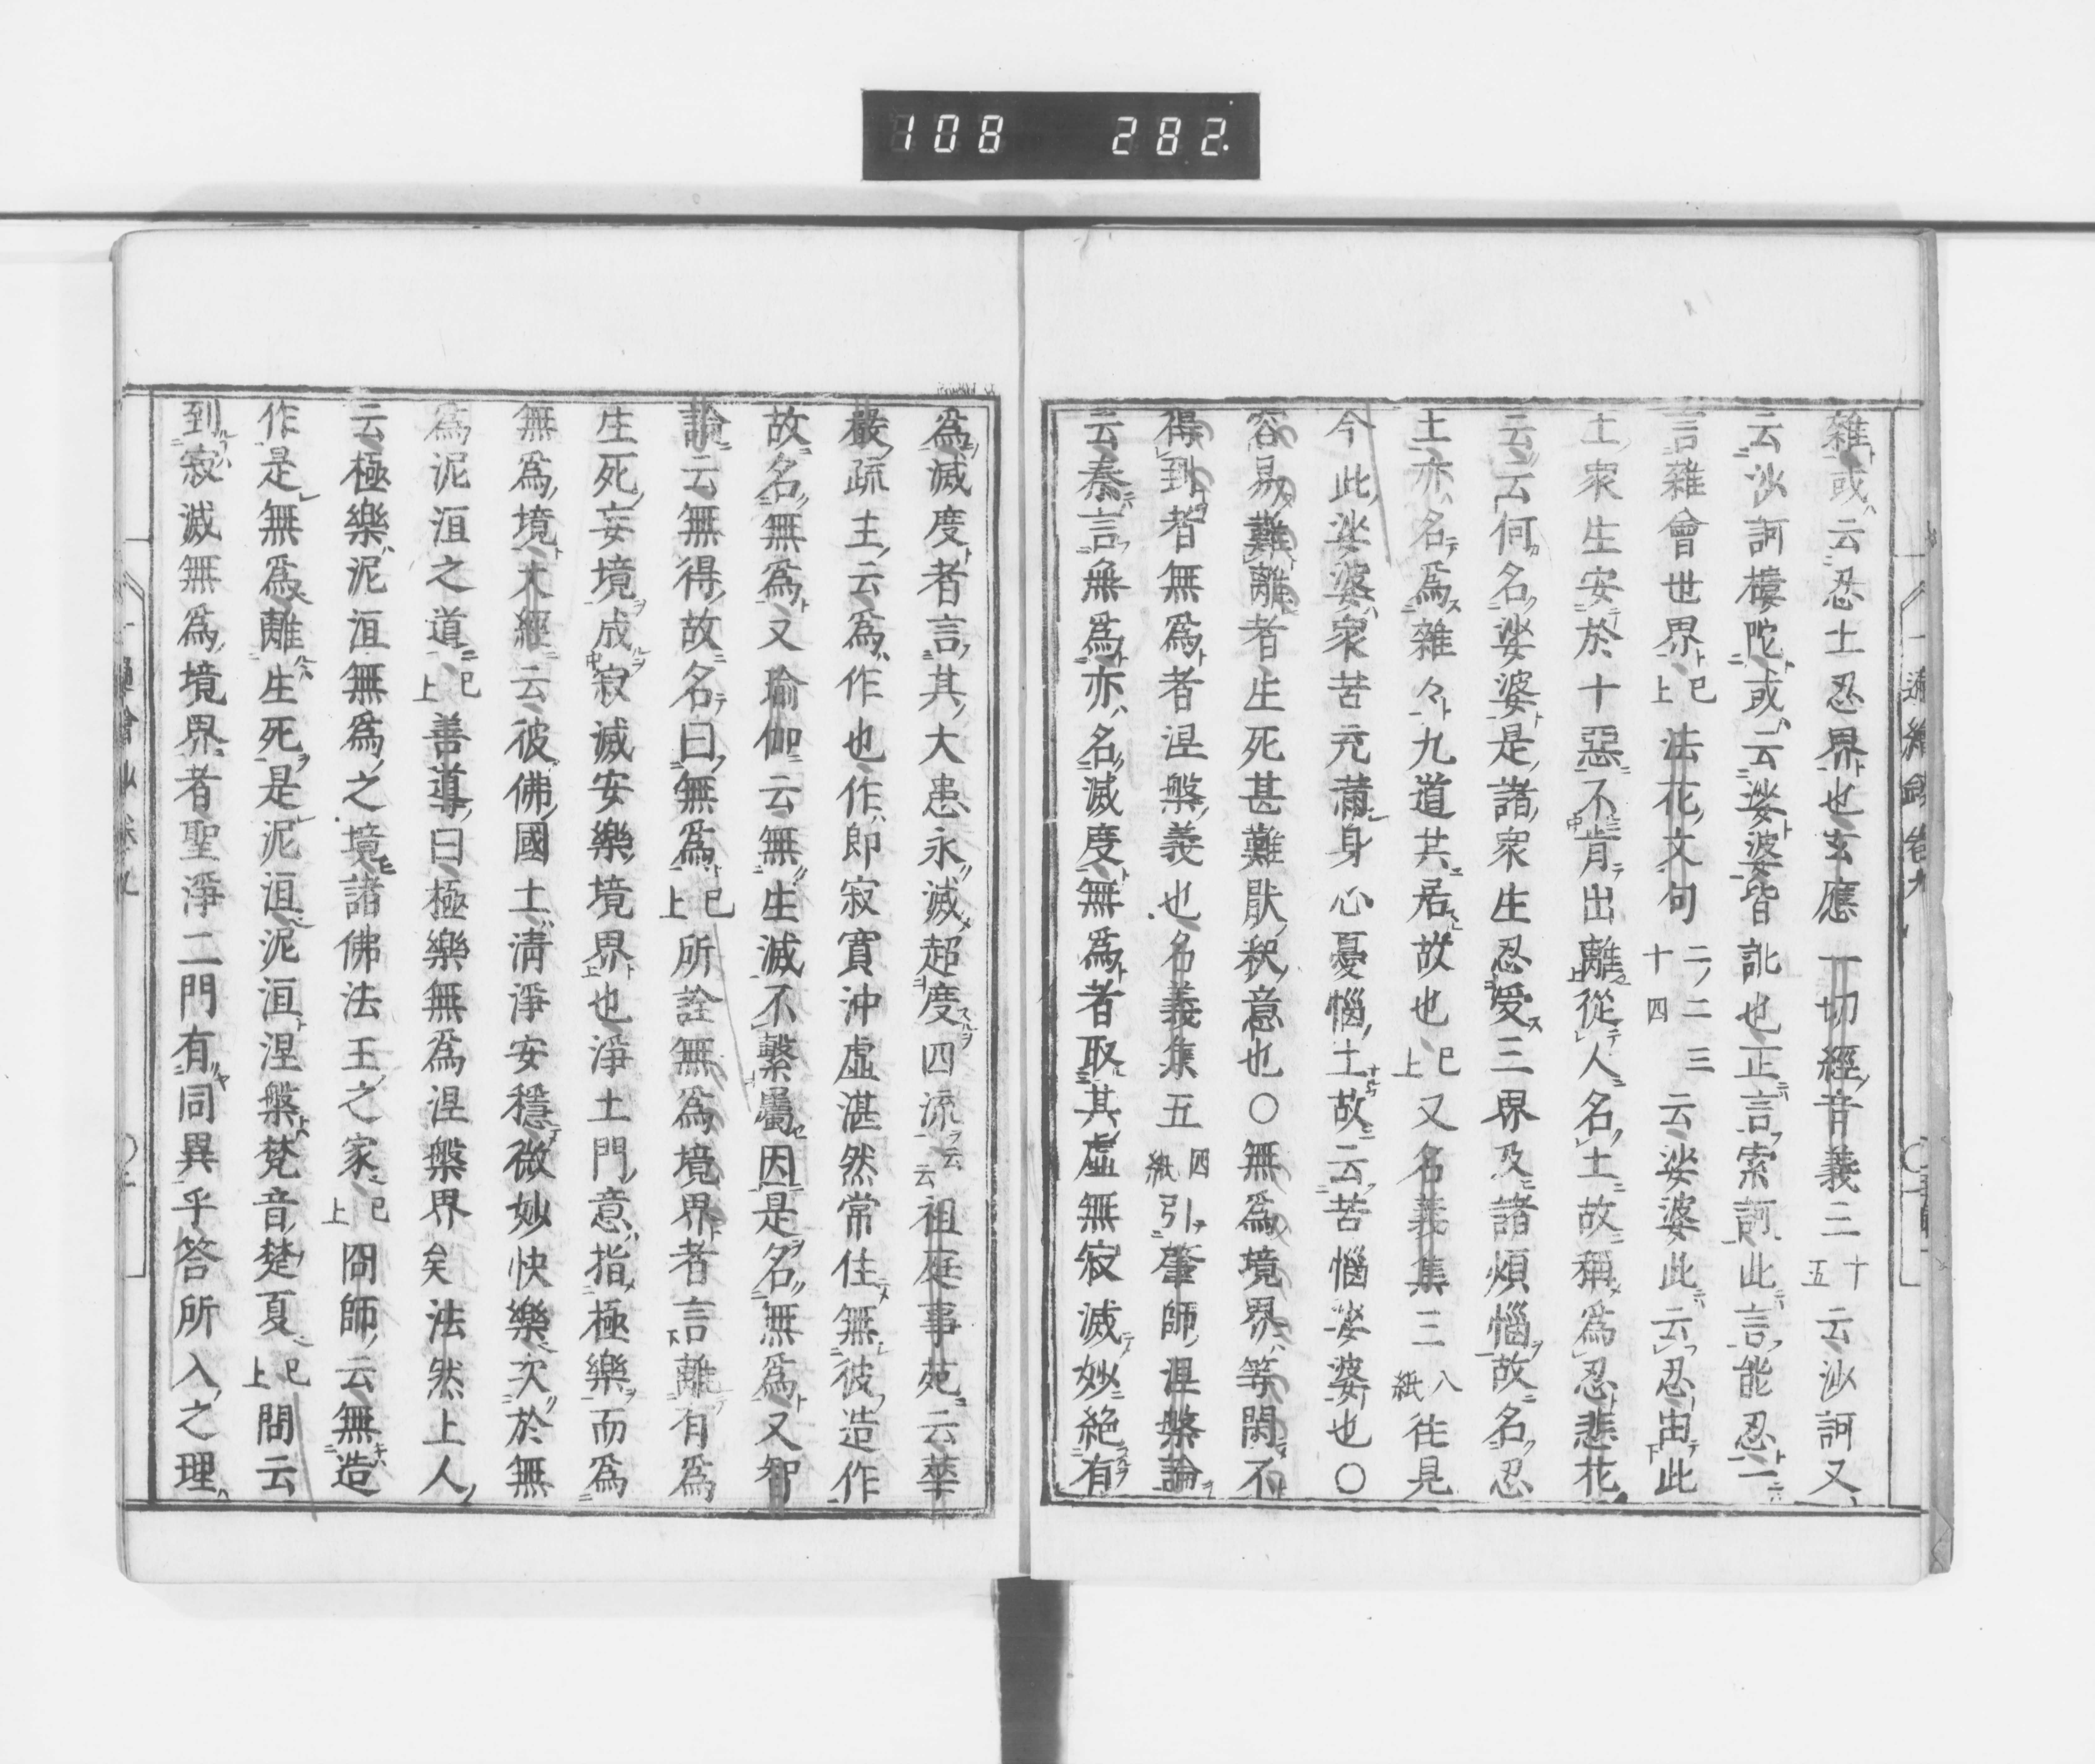 108 282
雜或云忍土忍界也玄應一切經音義三十五云沙訶又
云沙訶樓陀或云娑婆皆訛也正言索訶此言能忍一
言雜會世界已上法花文句二二三十四云娑婆此云忍由此
土衆生安於十惡不肯出離從人名土故稱爲忍悲花
云云何名娑婆是諸衆生忍受三界及諸煩惱故名忍
土亦名爲雜々九道共居故也已上又名義集三八紙往見
今此娑婆衆苦充滿身心憂惱土故云苦惱娑婆也○
容易難離者生死甚難猒釈意也○無爲境界等閑不
得到者無爲者涅槃義也名義集五四紙引肇師涅槃論
云秦言無爲亦名滅度無爲者取其虛無寂滅妙絶有
爲滅度者言其大患永滅超度四流云云祖庭事苑云華
嚴疏主云爲作也作即寂寞沖虛湛然常住無彼造作
故名無爲又瑜伽云無生滅不繫屬因是名無爲又智
論云無得故名曰無爲已上所詮無爲境界者言離有爲
生死妄境成寂滅安樂境界也淨土門意指極樂而爲
無爲境大經云彼佛國土清淨安穩微妙快樂次於無
爲泥洹之道已上善導曰極樂無爲涅槃界矣法然上人
云極樂泥洹無爲之境諸佛法王之家已上岡師云無造
作是無爲離生死是泥洹泥洹涅槃梵音楚夏已上問云
到寂滅無爲境界者聖淨二門有同異乎答所入之理